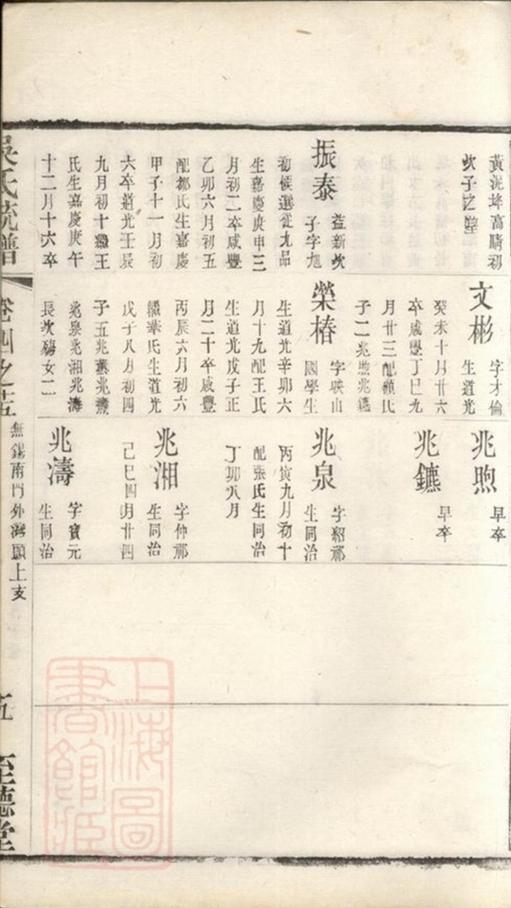 黃泥埄高疇初
次子之墍
振泰
益新次
子字旭
初候選從九品
生嘉慶庚申三
月初二卒咸豐
乙卯六月初五
配鄒氏生嘉慶
甲子十一月初
六卒道光壬辰
九月初十繼王
氏生嘉慶庚午
十二月十六卒
文彬
字才倫
生道光
癸未十月廿六
卒咸豐丁巳九
月廿三配顧氏
子二兆煦兆鑣
榮椿
字映山
國學生
生道光辛卯六
月十九配王氏
生道光戊子正
月二十卒咸豐
丙辰六月初六
繼華氏生道光
戊子八月初四
子五
兆泉兆湘兆濤
長次殤女二
兆煦
早卒
兆鑣
早卒
兆泉
字紹祁
生同治
丙寅九月初十
配張氏生同治
丁卯八月
兆湘
字仲祁
生同治
己巳四月廿四
兆濤
字寶元
生同治
吳氏統譜
卷四之五
無錫南門外海願上支
五
至德堂
上海圖書館藏